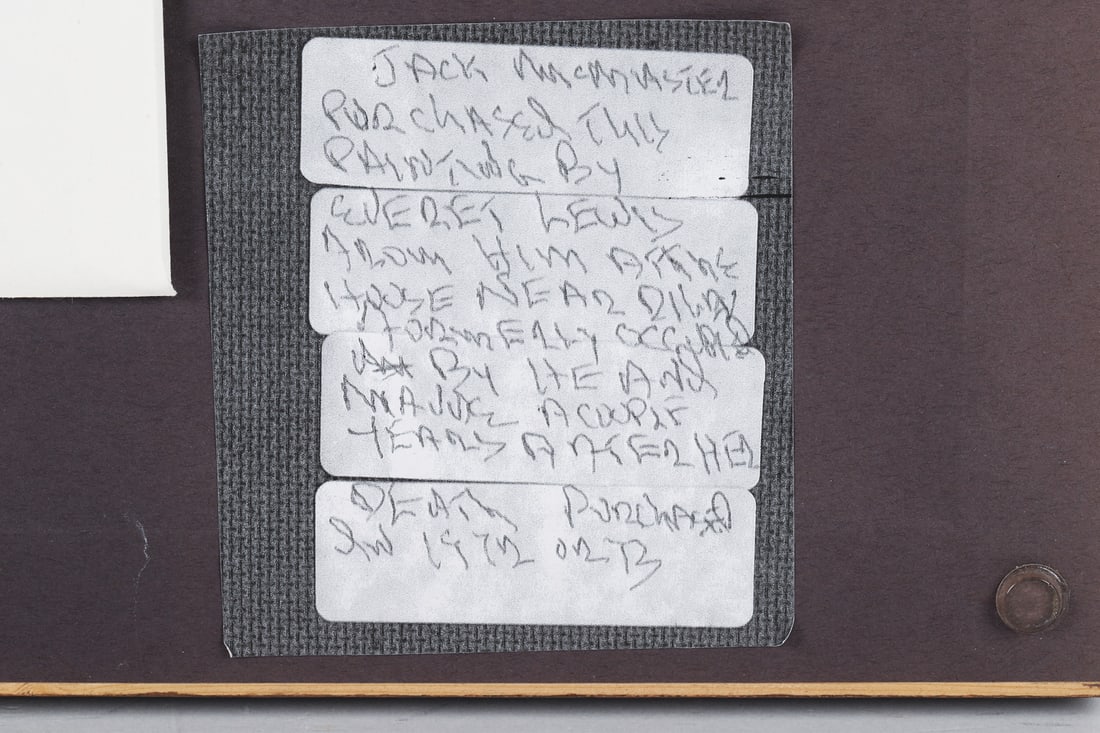 JACK McMASTER
PURCHASED THIS
PAINTING BY
EVERET LEWIS
FROM HIM AT THE
HOUSE NEAR
FORMERLY OCCUPIED
BY HE AND
A COUPLE
YEARS AFTER HER
DEATH PURCHASED
IN 1972 OR 73